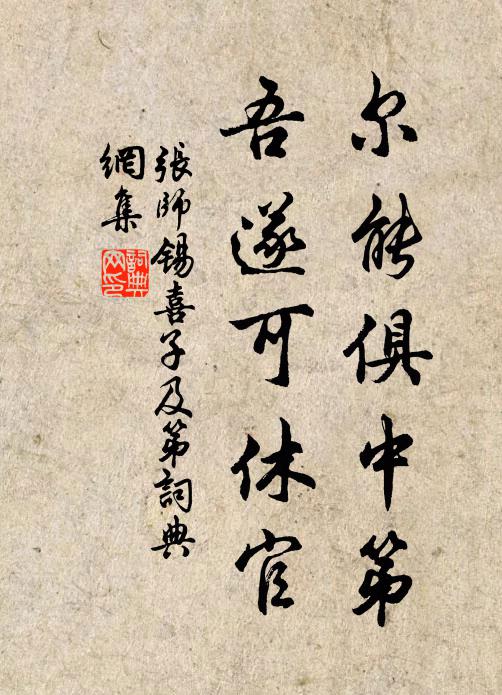 尔能俱中第
吾遂可休官
張师锡喜子及第詞典
網集
詞典
网印